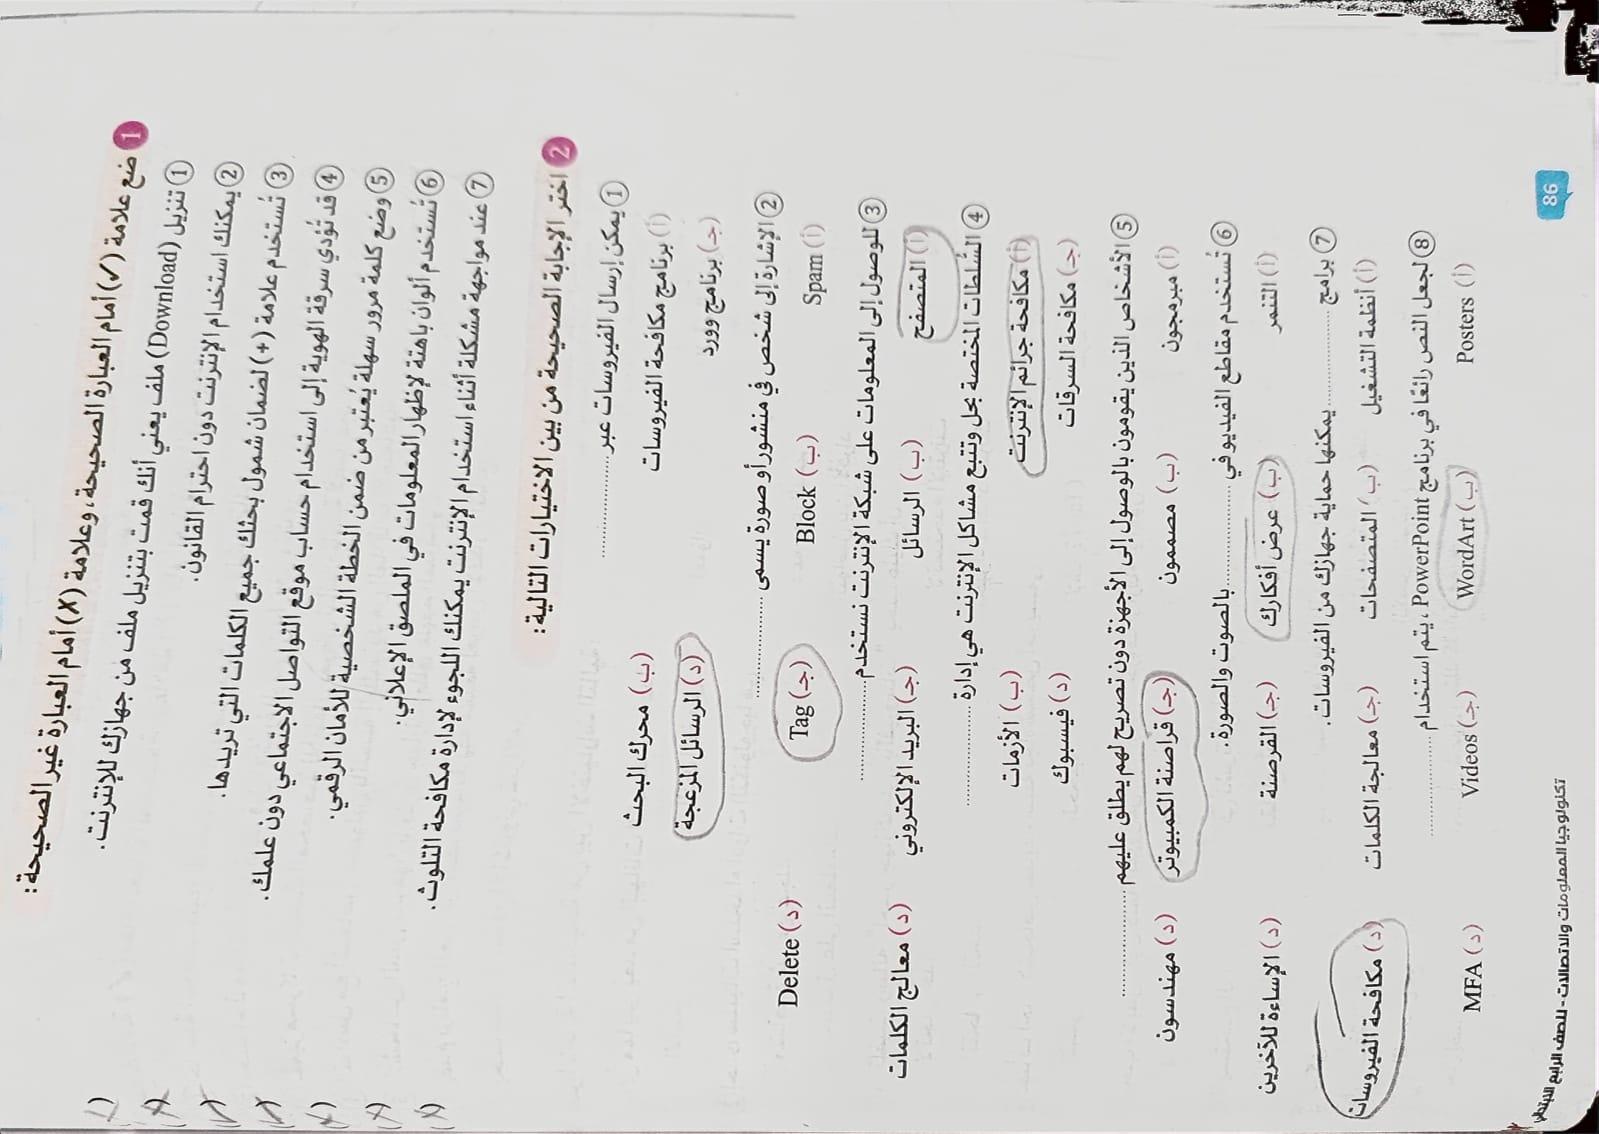 1 ضع علامة (✓) أمام العبارة الصحيحة، وعلامة (✗) أمام العبارة غير الصحيحة:
① تنزيل (Download) ملف يعني أنك قمت بتنزيل ملف من جهازك للإنترنت.
② يمكنك استخدام الإنترنت دون احترام القانون.
③ تُستخدم علامة (+) لضمان شمول بحثك جميع الكلمات التي تريدها.
④ قد تُؤدي سرقة الهوية إلى استخدام حساب موقع التواصل الاجتماعي دون علمك.
⑤ وضع كلمة مرور سهلة يُعتبر من ضمن الخطة الشخصية للأمان الرقمي.
⑥ تُستخدم ألوان باهتة لإظهار المعلومات في الملصق الإعلاني.
⑦ عند مواجهة مشكلة أثناء استخدام الإنترنت يمكنك اللجوء لإدارة مكافحة التلوث.
2 اختر الإجابة الصحيحة من بين الاختيارات التالية:
① يمكن إرسال الفيروسات عبر ...............
(أ) برنامج مكافحة الفيروسات (ب) محرك البحث
(جـ) برنامج وورد (د) الرسائل المزعجة
② الإشارة إلى شخص في منشور أو صورة يسمى ...............
(أ) Spam (ب) Block (جـ) Tag (د) Delete
③ للوصول إلى المعلومات على شبكة الإنترنت نستخدم ...............
(أ) المتصفح (ب) الرسائل (جـ) البريد الإلكتروني (د) معالج الكلمات
④ السُّلطات المختصة بحل وتتبع مشاكل الإنترنت هي إدارة ...............
(أ) مكافحة جرائم الإنترنت (ب) الأزمات
(جـ) مكافحة السرقات (د) فيسبوك
⑤ الأشخاص الذين يقومون بالوصول إلى الأجهزة دون تصريح لهم يطلق عليهم ...............
(أ) مبرمجون (ب) مصممون (جـ) قراصنة الكمبيوتر (د) مهندسون
⑥ تُستخدم مقاطع الفيديو في ............... بالصوت والصورة.
(أ) التنمر (ب) عرض أفكارك (جـ) القرصنة (د) الإساءة للآخرين
⑦ برامج ............... يمكنها حماية جهازك من الفيروسات.
(أ) أنظمة التشغيل (ب) المتصفحات (جـ) معالجة الكلمات (د) مكافحة الفيروسات
⑧ لجعل النص رائعًا في برنامج PowerPoint، يتم استخدام ...............
(أ) Posters (ب) WordArt (جـ) Videos (د) MFA
86
تكنولوجيا المعلومات والاتصالات - للصف الرابع الابتدائي